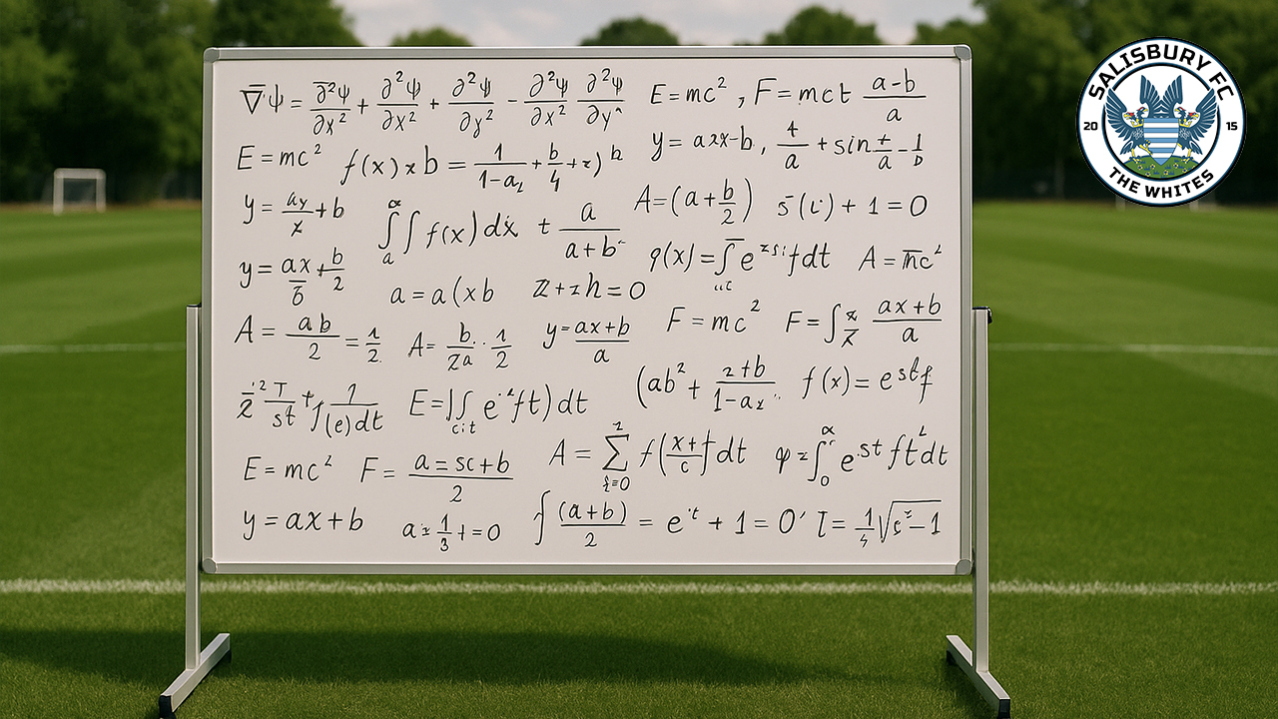 ∇̅·ψ = ∂̅²ψ/∂x² + ∂²ψ/∂x² + ∂²ψ/∂y² - ∂²ψ/∂x² ∂²ψ/∂y
E = mc², F = mct (a-b)/a
E = mc² f(x) x b = 1/(1-a₂) + b/4 + z) b
y = a2x-b, 4/a + sin
y = ay/x + b
∫∫ f(x) dx + a/(a+b)
A = (a + b/2) 5(i) + 1 = 0
y = ax/5 + b/2
a = a(xb z+zh = 0
φ(x) = ∫ e fdt A = mc²
A = ab/2 = 1/2
A = b/2a · 1/2
y = (ax+b)/a
F = mc² F = ∫ x/z (ax+b)/a
E = ∫∫ ft) dt
(ab² + (z+b)/(1-az) f(x) = e^(st) f
E = mc² F = (a=sc+b)/2
A = ∑ f( dt
e^(st) ft² dt
y = ax+b a = 1/3 + = 0
∫ (a+b)/2 = e^(·t) + 1 = 0' I = 1/4 √
SALISBURY FC
20 15
THE WHITES